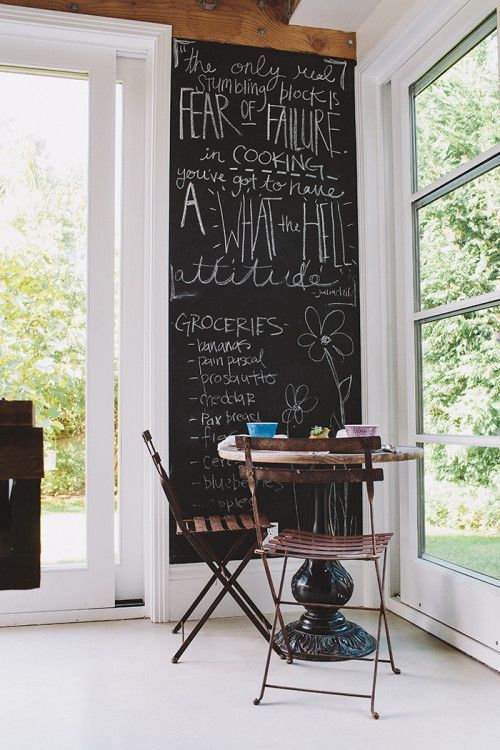 "the only real
stumbling block is
FEAR OF FAILURE.
in COOKING
you've got to have
A WHAT the HELL
attitude"
- julia child
GROCERIES-
- bananas
- pain pascal
- proscuitto
- cheddar
- pax bread
- blueberries
- apples